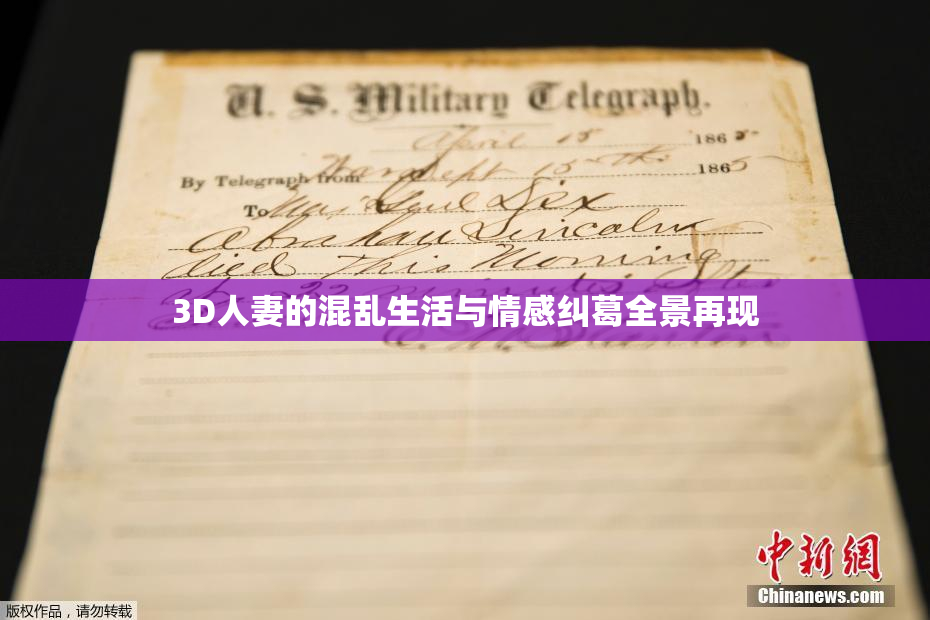 U. S. Military Telegraph.
April 15 1865
By Telegraph from War Dept 15th 1865
To Maj Genl Dix
Abraham Lincoln
died This Morning
at 22 minutes after
3D人妻的混乱生活与情感纠葛全景再现
E. M. Stanton
中新網
Chinanews.com
版权作品，请勿转载